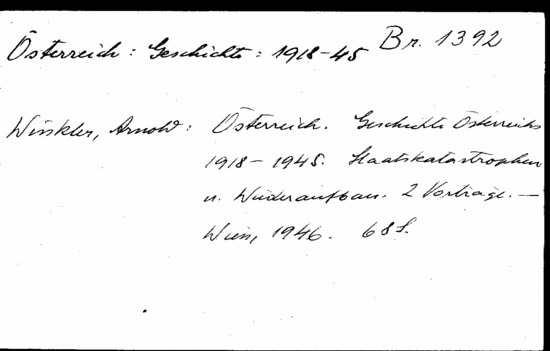 Österreich : Geschichte : 1918-45 Br. 1392
Winkler, Arnold : Österreich. Geschichte Österreichs
1918-1945. Staatskatastrophen
u. Wiederaufbau. 2 Vorträge. —
Wien, 1946. 68 S.